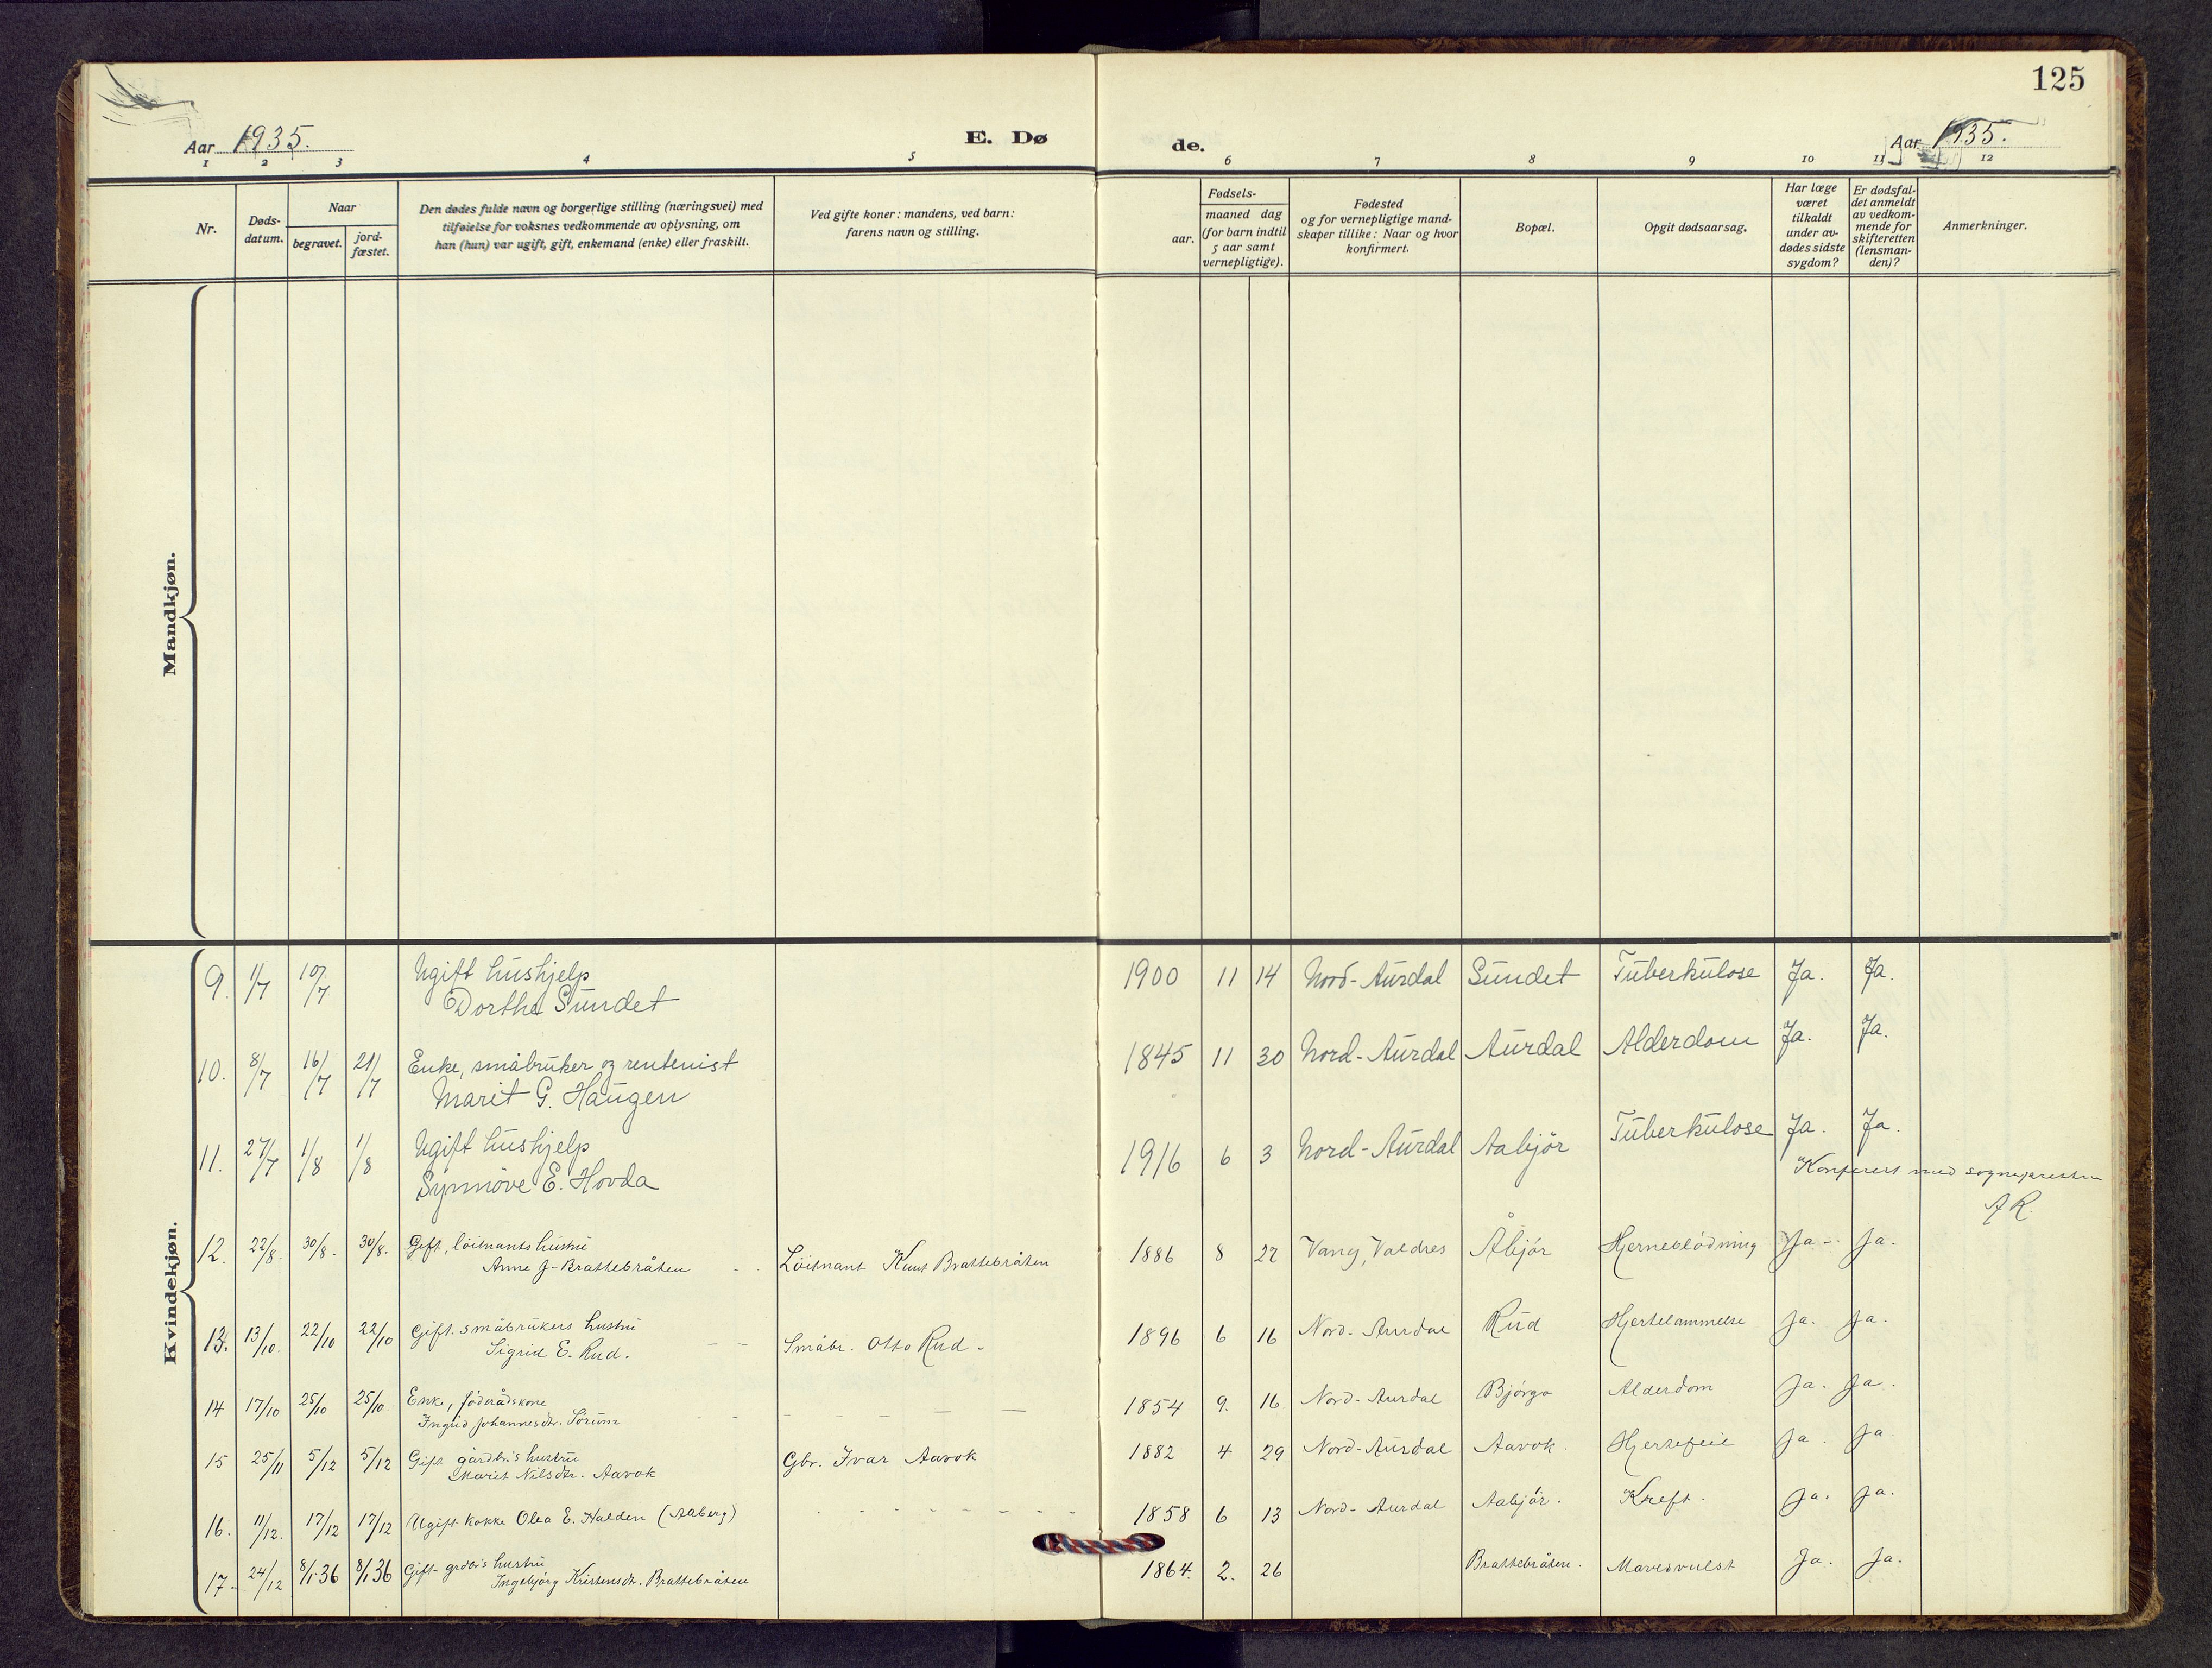 125
Aar 1935.
E. Dø
de.
Aar 1935.
1 2 3 4 5 6 7 8 9 10 11 12
Nr.
Døds-
datum.
Naar
begravet.
jord-
fæstet.
Den dødes fulde navn og borgerlige stilling (næringsvei) med
tilføielse for voksnes vedkommende av oplysning, om
han (hun) var ugift, gift, enkemand (enke) eller fraskilt.
Ved gifte koner: mandens, ved barn:
farens navn og stilling.
Fødsels-
aar.
maaned dag
(for barn indtil
5 aar samt
vernepligtige).
Fødested
og for vernepligtige mand-
skaper tillike: Naar og hvor
konfirmert.
Bopæl.
Opgit dødsaarsag.
Har læge
været
tilkaldt
under av-
dødes sidste
sygdom?
Er dødsfal-
det anmeldt
av vedkom-
mende for
skifteretten
(lensman-
den)?
Anmerkninger.
Mandkjøn.
Kvindekjøn.
9. 1/7 10/7 Ugift hushjelp
Dorthe Sundet
1900 11 14 Nord-Aurdal Sundet Tuberkulose Ja. Ja.
10. 8/7 16/7 21/7 Enke, småbruker og rentenist
Marit G. Haugen
1845 11 30 Nord-Aurdal Aurdal Alderdom Ja. Ja.
11. 27/7 1/8 1/8 Ugift hushjelp
Synnöve E. Hovda
1916 6 3 Nord-Aurdal Aabjör Tuberkulose Ja. Ja.
Konferert med sognepresten
A R.
12. 22/8. 30/8. 30/8. Gift, löitnants hustru
Anne G. Brattebråten - - Löitnant Knut Bråttebråten
1886 8 27 Vang, Valdres Åbjör Hjerneblödning Ja - Ja.
13. 13/10. 22/10 22/10 Gift. småbrukers hustru
Sigrid E. Rud. - - Småbr. Otto Rud -
1896 6 16 Nord-Aurdal Rud Hjertelammelse Ja. Ja.
14 17/10 25/10 25/10 Enke, föderådskone
Ingrid Johannesdtr. Sörum - - - - - - -
1854 9. 16 Nord-Aurdal Björgo Alderdom Ja. Ja.
15 25/11 5/12 5/12 Gift gårdbr's hustru
Marit Nilsdtr. Aavok Gbr. Ivar Aavok
1882 4 29 Nord-Aurdal Aavok. Hjertefeil Ja. Ja.
16. 11/12. 17/12 17/12 Ugift kokke Olea E. Halden (Aaberg) - - - - - -
1858 6 13 Nord-Aurdal Aabjör. Kreft. Ja. Ja.
17. 24/12 8/1-36 8/1 36 Gift grdbr's hustru
Ingebjörg Kristensdtr. Brattebråten
1864. 2. 26 Brattebråten. Mavesvulst Ja. Ja.